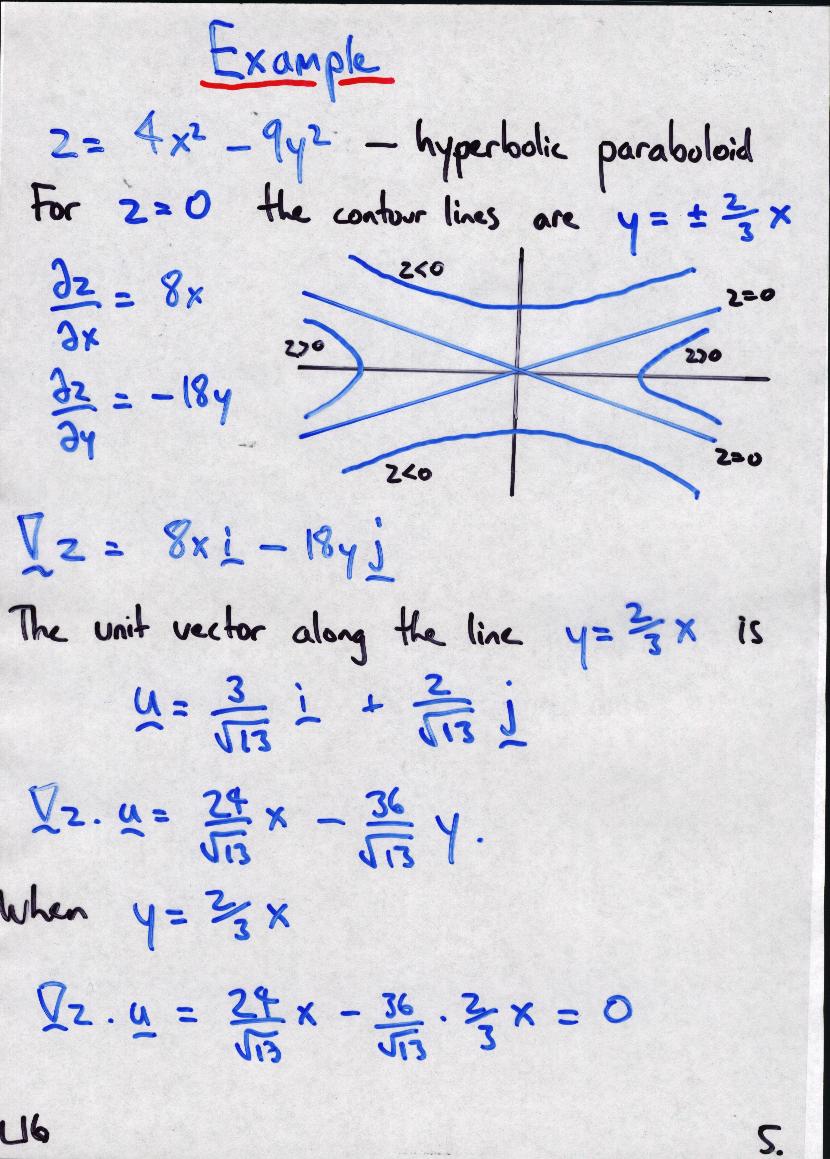 Example
z = 4x² - 9y² - hyperbolic paraboloid
For z = 0 the contour lines are y = ± 2/3 x
∂z/∂x = 8x
∂z/∂y = -18y
z<0
z=0
z>0
z>0
z<0
z=0
∇z = 8x i - 18y j
The unit vector along the line y = 2/3 x is
u = 3/√13 i + 2/√13 j
∇z . u = 24/√13 x - 36/√13 y.
When y = 2/3 x
∇z . u = 24/√13 x - 36/√13 . 2/3 x = 0
L16
5.